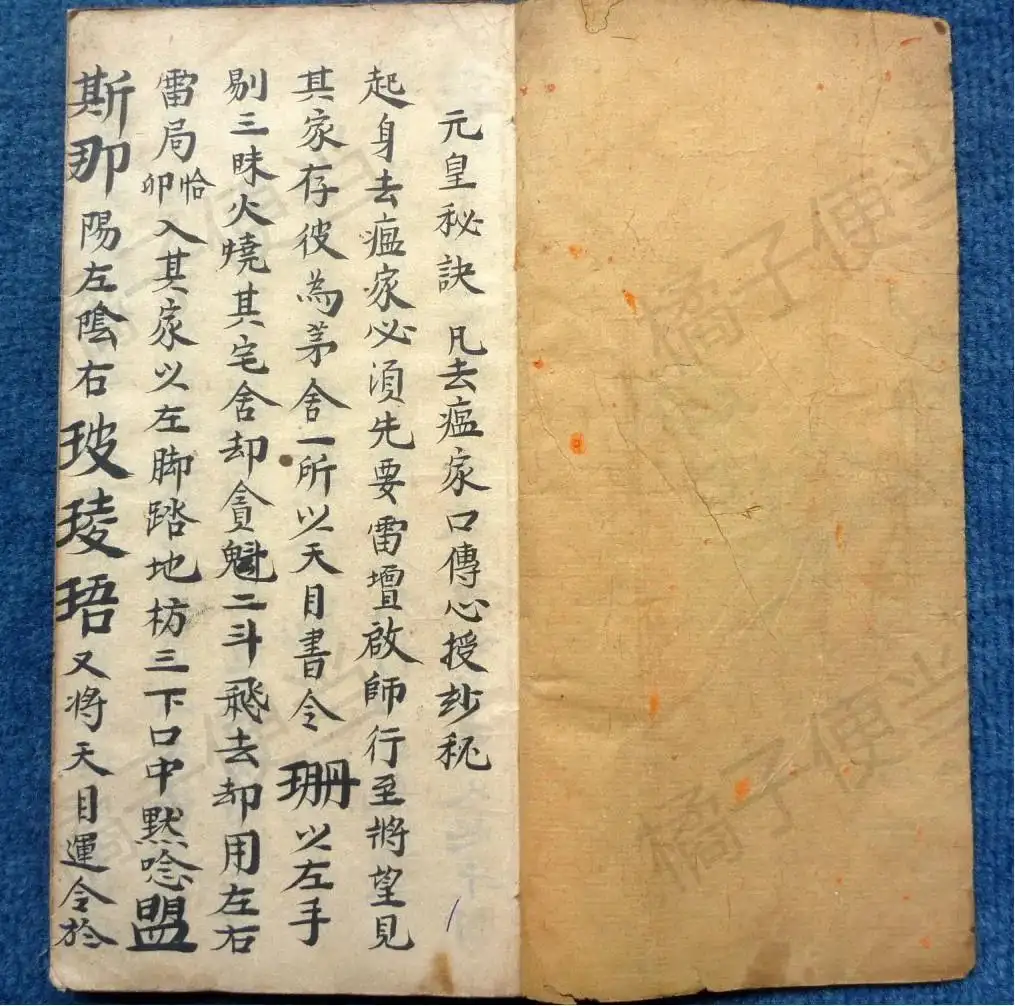 元皇秘訣 凡去瘟家口傳心授玅秘
起身去瘟家必須先要雷壇啟師行至將望見
其家存彼為茅舍一所以天目書令珊以左手
剔三昧火燒其宅舍却貪魁二斗飛去却用左右
雷局恰卯入其家以左脚踏地枋三下口中黙唸盟
斯那陽左陰右玻琖珸又將天目運令於
橘子便当
橘子便当
橘子便当
橘子便当